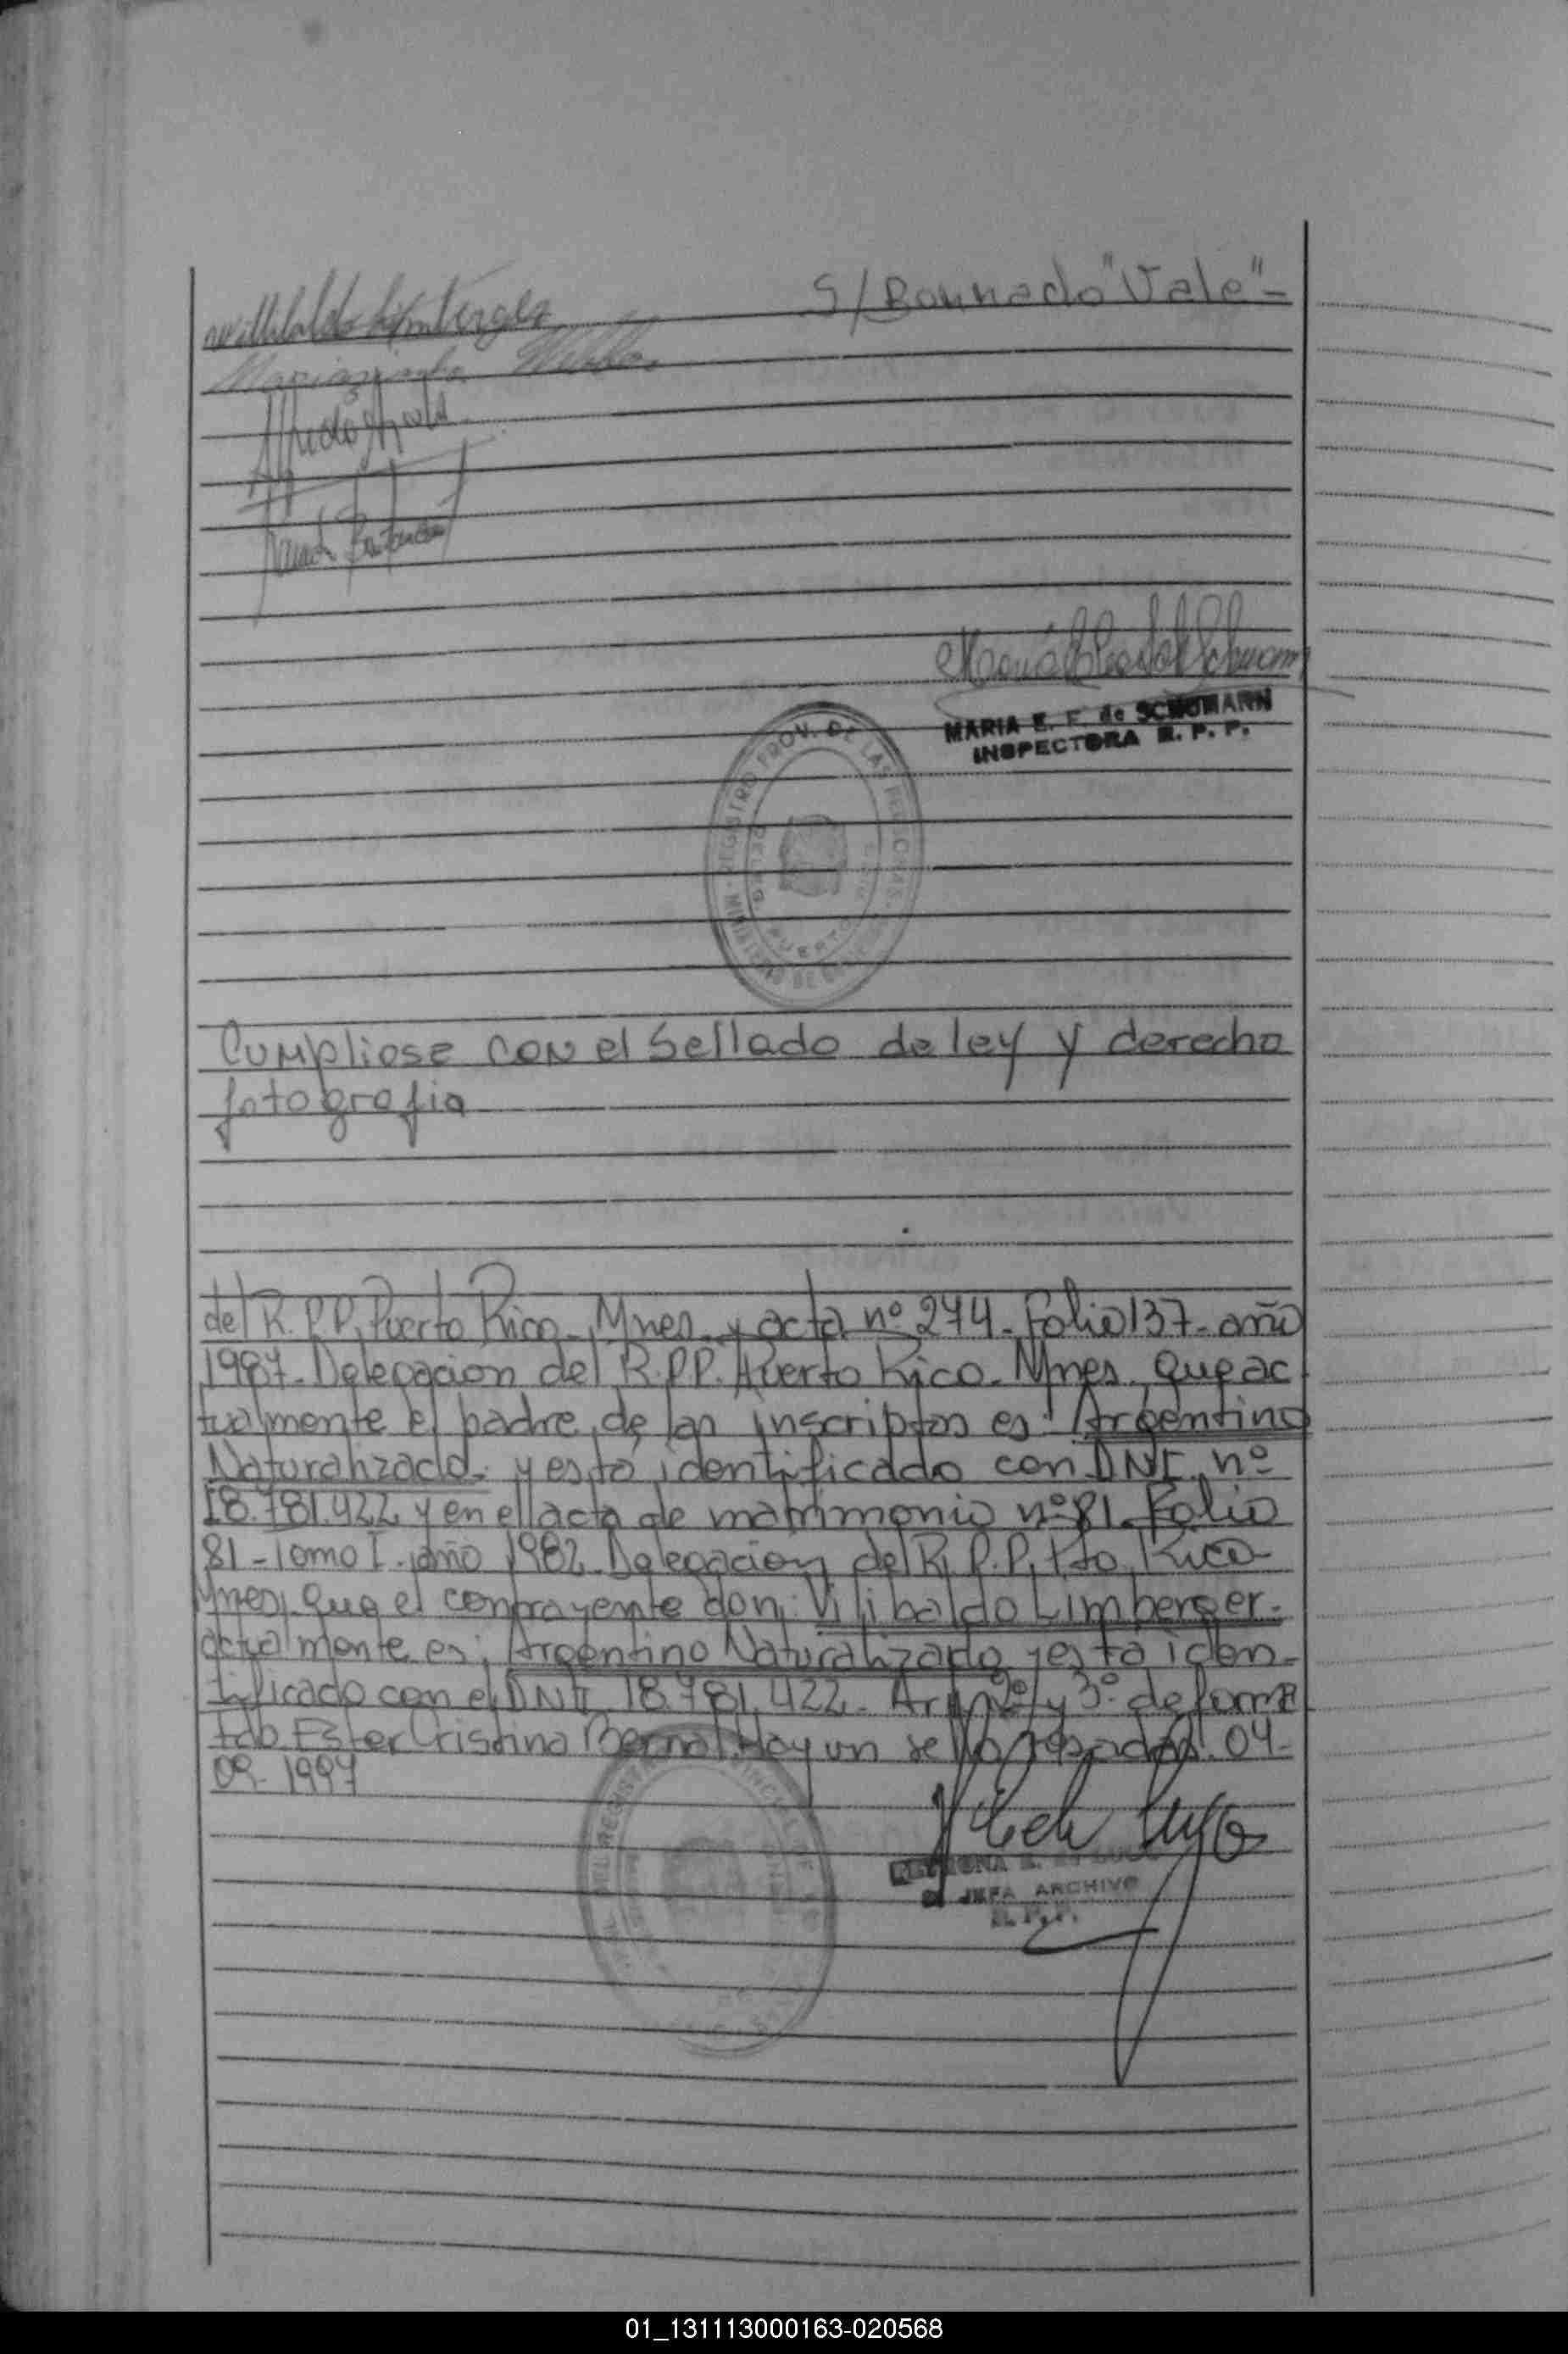 S/Borrado "Vale"-
Willibaldo Limberger
Alfredo
MARIA E. F. de SCHUMANN
INSPECTORA R. P. P.
REGISTRO PROV. DE LAS PERSONAS
MINISTERIO DE GOBIERNO
PUERTO
Cumpliose con el Sellado de ley y derecho
fotografia
del R.P.P. Puerto Rico-Mnes. y acta nº 274-folio 137-año
1987-Delegacion del R.P.P. Puerto Rico-Mnes., que ac
tualmente el padre de las inscriptas es: Argentino
Naturalizado. y está identificado con DNI. nº
18.781.422 y en el acta de matrimonio nº 81-Folio
81-Tomo I-año 1982-Delegacion del R.P.P. Pto. Rico-
Mnes, que el contrayente don: Vilibaldo Limberger-
actualmente es: Argentino Naturalizado y está iden-
tificado con el DNI 18.781.422- Art. 2º y 3º de forma
fdo. Ester Cristina Bernal. Hay un sello 04-
09-1997
JEFA ARCHIVO
R.P.P.
01_131113000163-020568